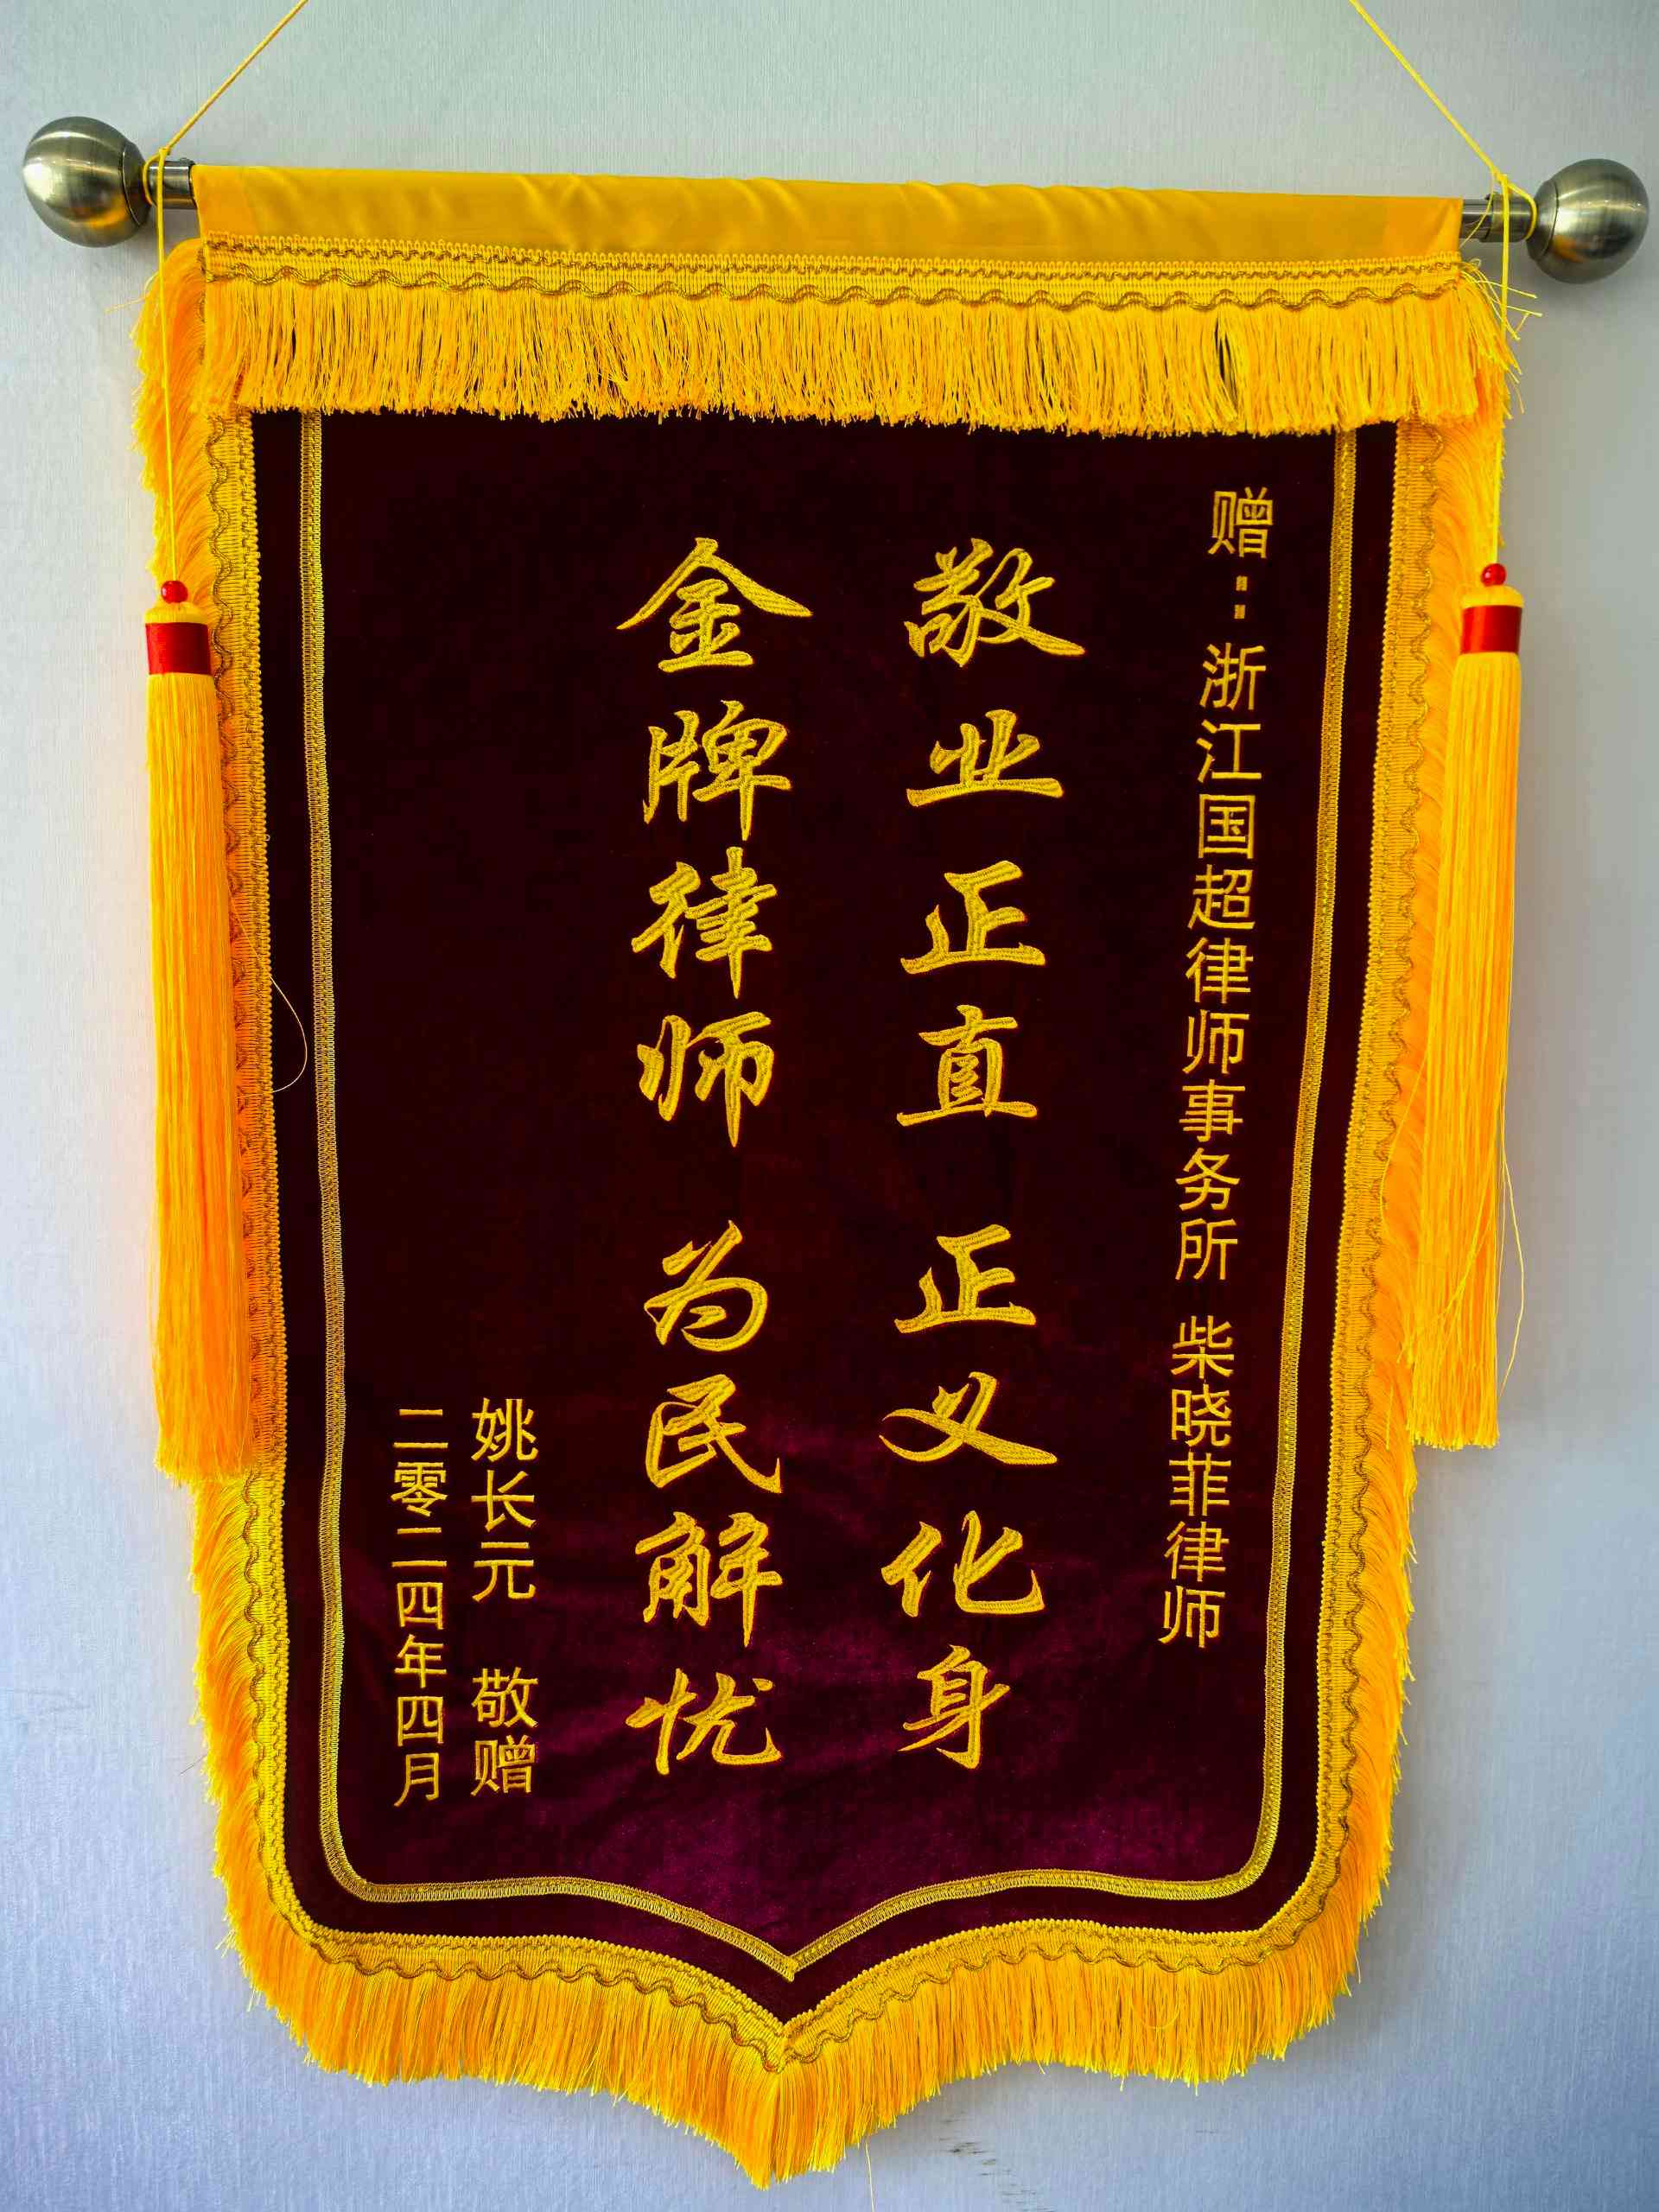 赠：浙江国超律师事务所 柴晓菲律师
敬业正直 正义化身
金牌律师 为民解忧
姚长元 敬赠
二零二四年四月